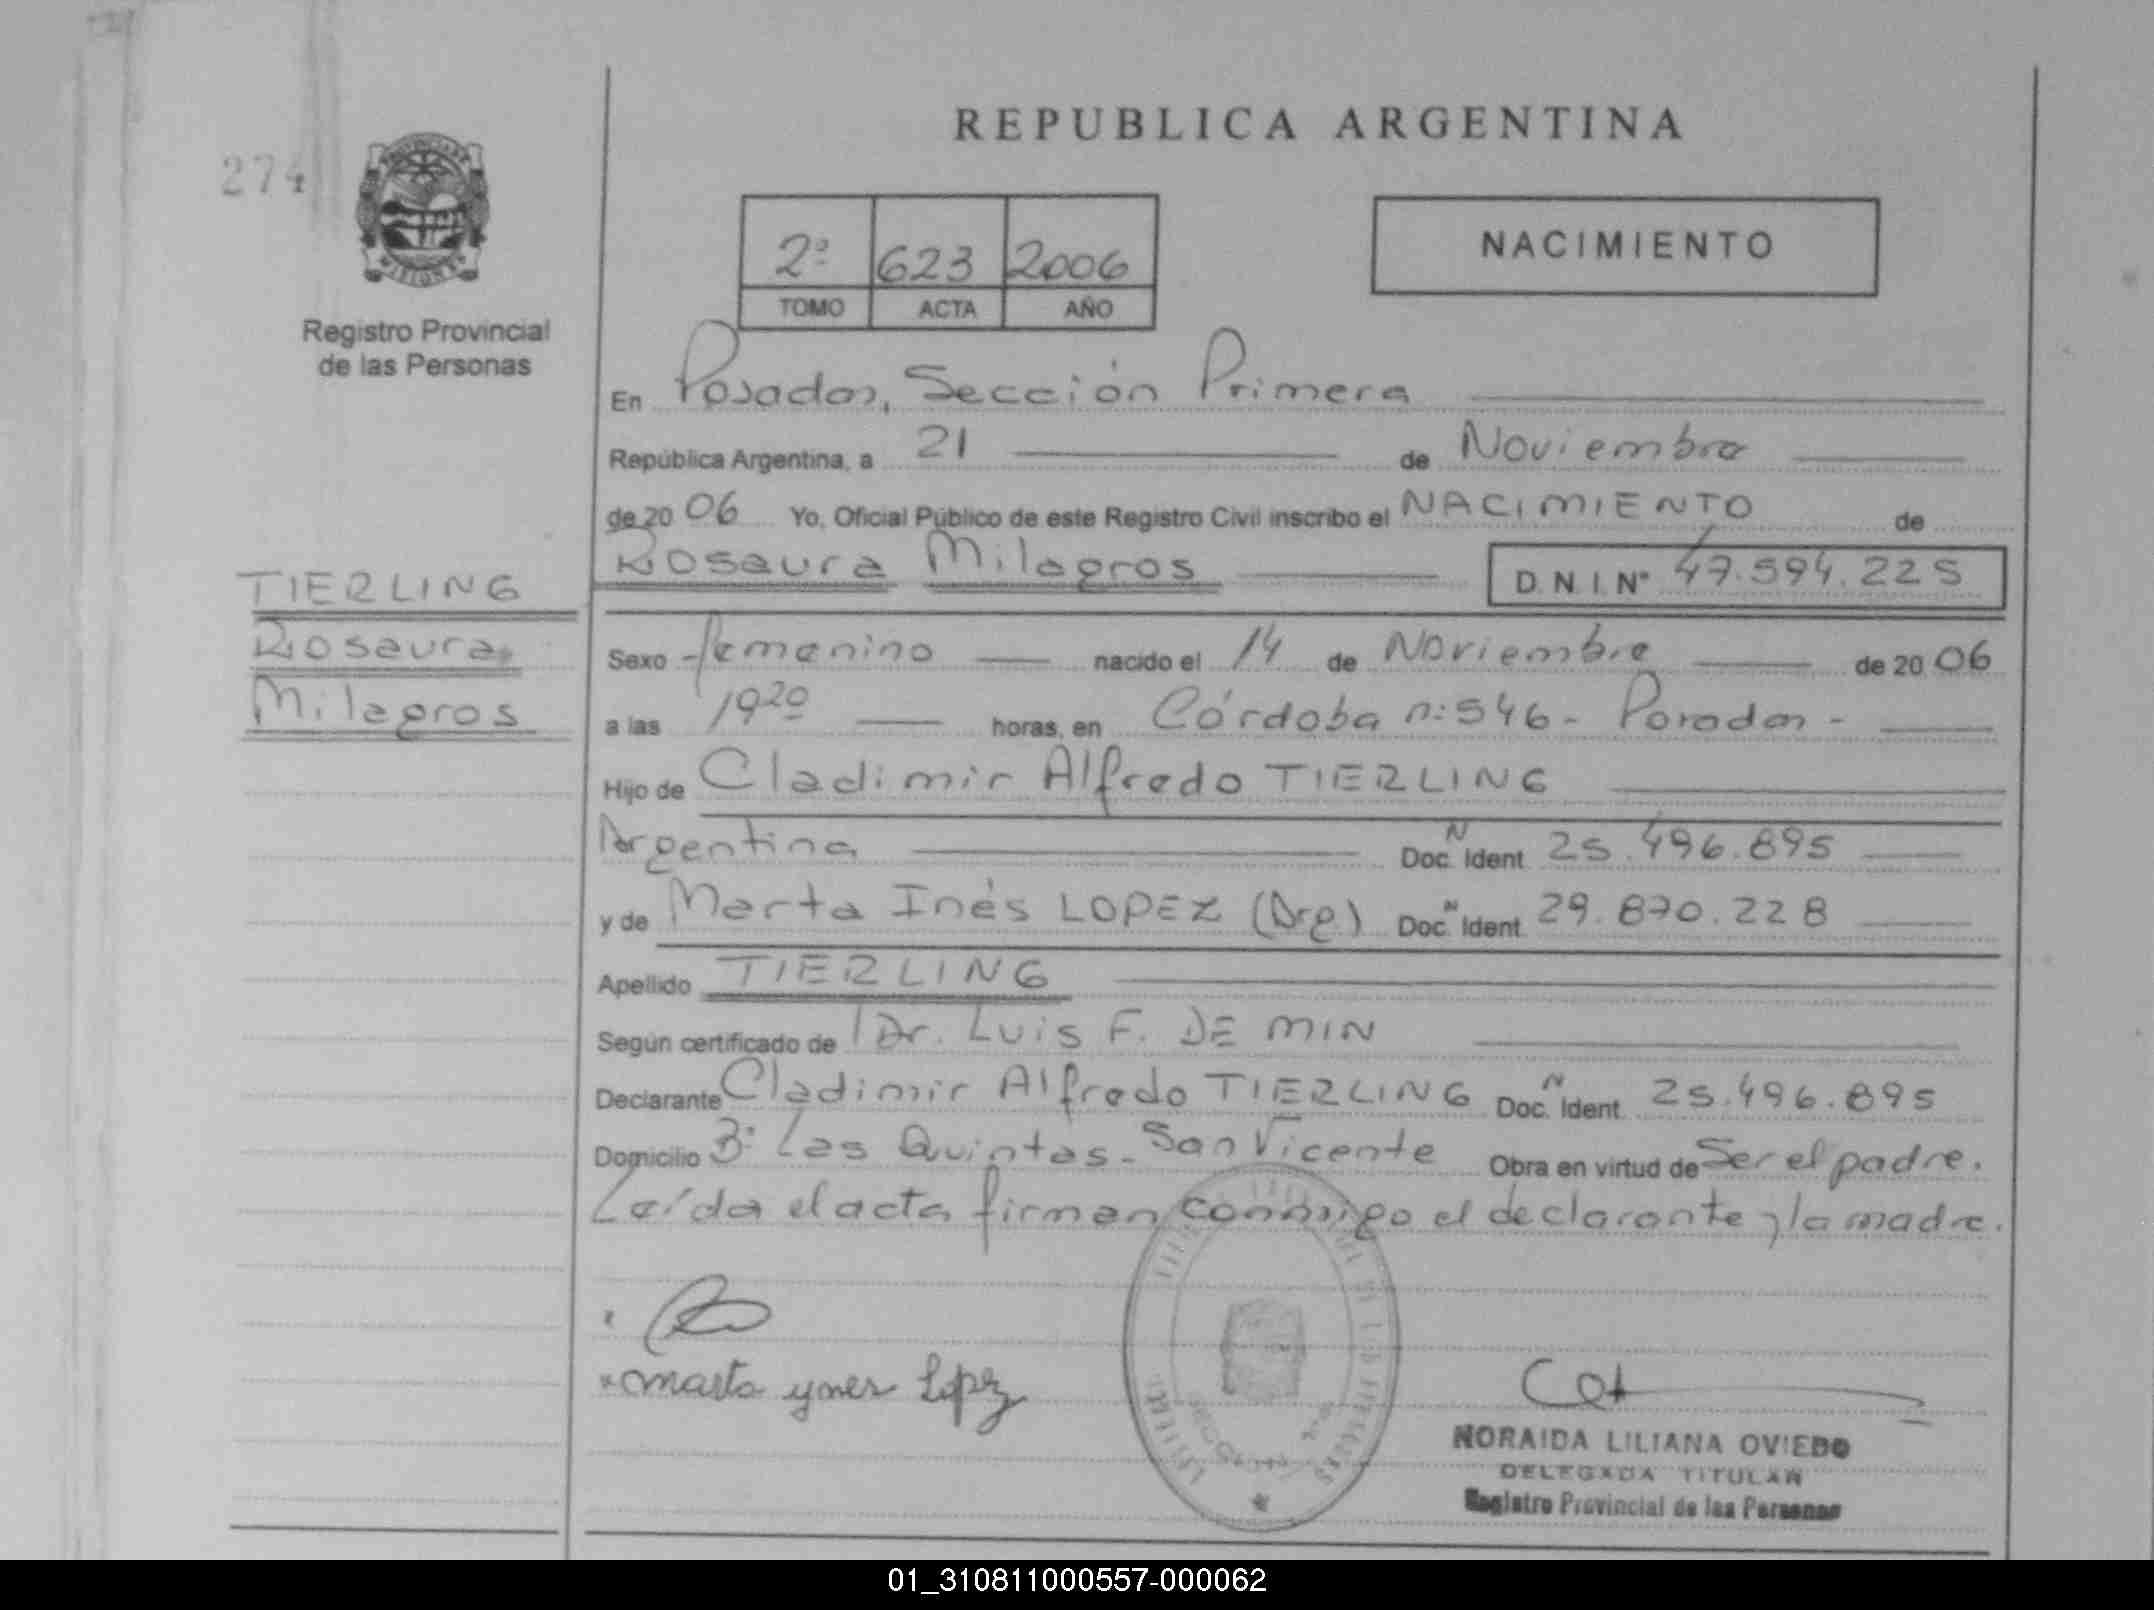 REPUBLICA ARGENTINA
274
PROVINCIA DE
MISIONES
Registro Provincial
de las Personas
2º 623 2006
TOMO ACTA AÑO
NACIMIENTO
En Posadas, Sección Primera
República Argentina, a 21 de Noviembre
de 20 06 Yo, Oficial Público de este Registro Civil inscribo el NACIMIENTO de
Rosaura Milagros D. N. I. Nº 47.594.225
TIERLING
Rosaura
Milagros
Sexo femenino nacido el 14 de Noviembre de 20 06
a las 19 20 horas, en Córdoba nº 546 - Posadas -
Hijo de Cladimir Alfredo TIERLING
Argentina Doc. N Ident. 25.496.895
y de Marta Inés LOPEZ (Arg) Doc. N Ident. 29.870.228
Apellido TIERLING
Según certificado de Dr. Luis F. DE MIN
Declarante Cladimir Alfredo TIERLING Doc. N Ident. 25.496.895
Domicilio Bº Las Quintas - San Vicente Obra en virtud de Ser el padre.
Leída el acta firman conmigo el declarante y la madre.
marta ynes Lopez
NORAIDA LILIANA OVIEDO
DELEGADA TITULAR
Registro Provincial de las Personas
01_310811000557-000062